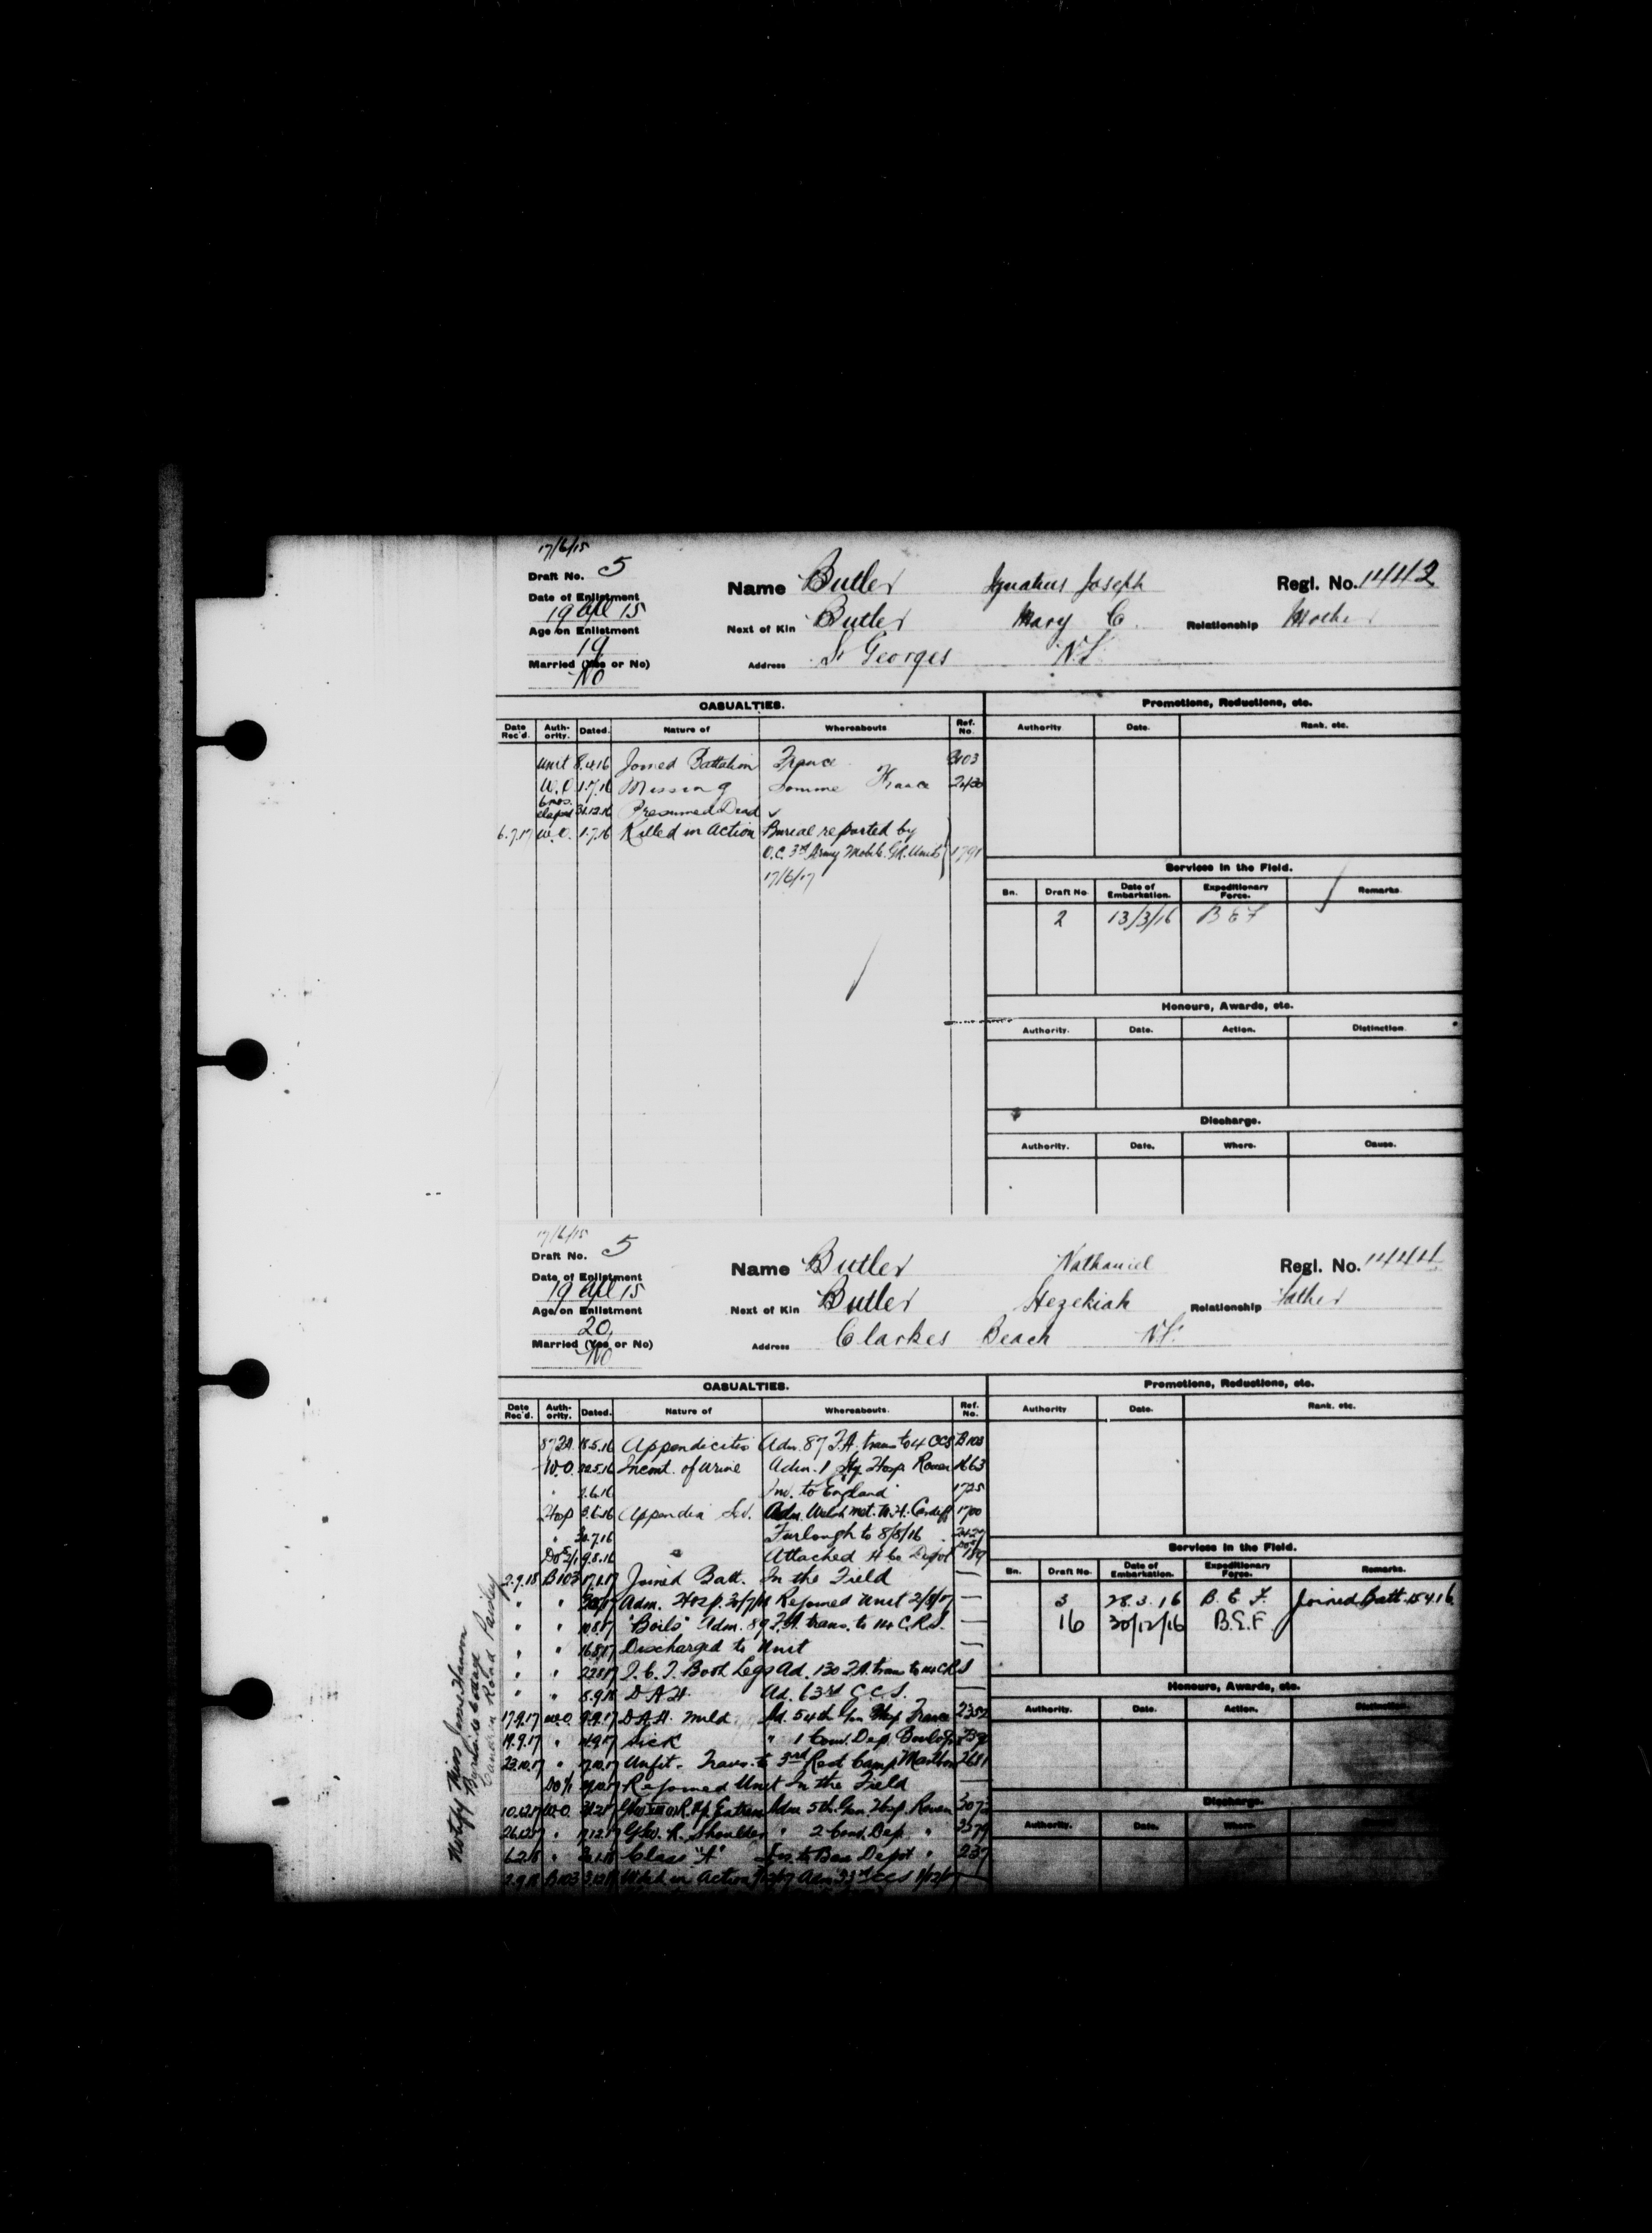 17/6/15
Draft No. 5
Name Butler Ignatius Joseph Regl. No. 1442
Date of Enlistment
19 Apl 15
Next of Kin Butler Mary C. Relationship Mother
Age on Enlistment
19
Address St Georges N.F.
Married (Yes or No)
No
CASUALTIES. Promotions, Reductions, etc.
Date Rec'd. Auth-ority. Dated. Nature of Whereabouts Ref. No. Authority Date. Rank, etc.
Unit 8.4.16 Joined Battalion France B103
W.O. 1.7.16 Missing Somme France
6 mos. elapsed 31.12.16 Presumed Dead
6.7.17 W.O. 1.7.16 Killed in Action Burial reported by
O.C. 3rd Army Mobile G.R. Units 1791
17/6/17
Services in the Field.
Bn. Draft No. Date of Embarkation. Expeditionary Force. Remarks.
2 13/3/16 B E F
Honours, Awards, etc.
Authority. Date. Action. Distinction.
Discharge.
Authority. Date. Where. Cause.
17/6/15
Draft No. 5
Name Butler Nathaniel Regl. No. 1444
Date of Enlistment
19 Apl 15
Next of Kin Butler Hezekiah Relationship Father
Age on Enlistment
20
Address Clarkes Beach N.F.
Married (Yes or No)
No
CASUALTIES. Promotions, Reductions, etc.
Date Rec'd. Auth-ority. Dated. Nature of Whereabouts. Ref. No. Authority Date. Rank, etc.
87 F.A. 18.5.16 Appendicitis Adm. 87 F.A. trans to 4 CCS B103
W.O. 22.5.16 Incont. of urine Adm. 1 Sty. Hosp. Rouen 1663
" 2.6.16 Inv. to England 1725
Hosp 3.6.16 Appendix Adm. Welsh Met. W.H. Cardiff 1700
" 7.16 Furlough to 8/8/16
9.8.16 Attached H Co Depot
2.9.18 B103 17.1.17 Joined Batt. In the Field —
" " Adm. Hosp. Rejoined Unit 2/8/17 —
" " 10.8.17 "Boils" Adm. 89 F.A. trans. to C.R.S. —
" " 16.8.17 Discharged to Unit —
" " 27.8.17 I.C.T. Both Legs Ad. 130 F.A. trans to C.R.S
" " 8.9.17 D.A.H. Ad. 63rd C.C.S. —
17.9.17 W.O. 9.9.17 D.A.H. Mild Ad. 54th Gen Hosp France 2352
19.9.17 " Sick " 1 Conv. Dep. Boulogne
23.10.17 " Unfit - Trans. to 3rd Rest Camp 2681
Rejoined Unit In the Field —
10.12.17 W.O. Adm 5th Gen. Hosp. Rouen 3072
26.12.17 " 17.12.17 GSW. R. Shoulder " 2 Conv. Dep. "
6.2.18 " Class "A" to Base Depot " 237
2.9.18 B103 Wded in Action
Services in the Field.
Bn. Draft No. Date of Embarkation. Expeditionary Force. Remarks.
3 28.3.16 B.E.F. Joined Batt. 15.4.16
16 30/12/16 B.E.F.
Honours, Awards, etc.
Authority. Date. Action. Distinction.
Discharge.
Authority. Date. Where.
Notify Miss
Cottage
Road Paisley